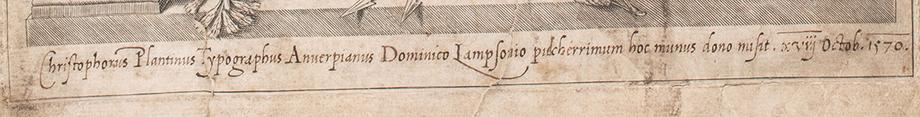 Christophorus Plantinus Typographus Anverpianus Dominico Lampsonio pulcherrimum hoc munus dono misit. xviij Octob. 1570.